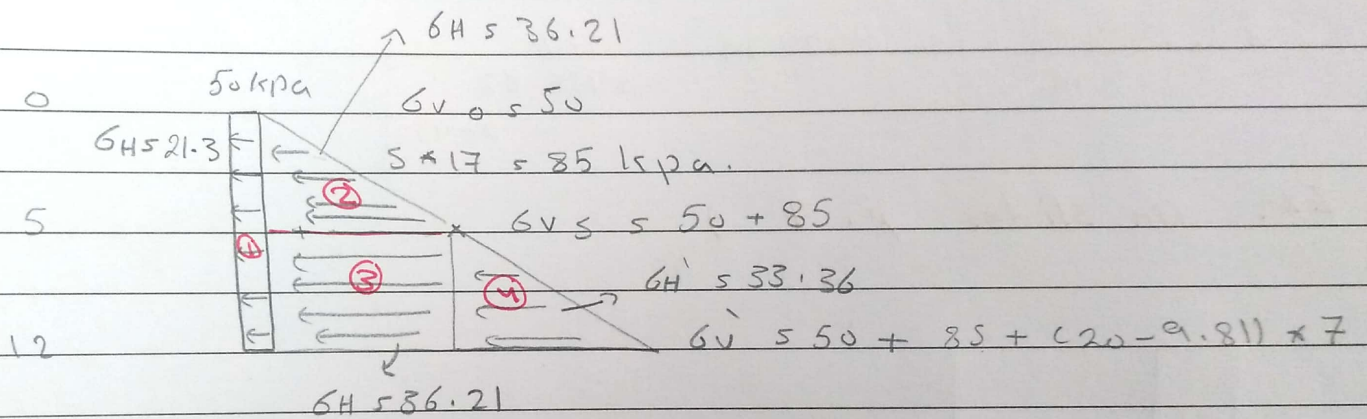 6H = 36.21
50 kpa
0 6v 0 = 50
6H = 21.3 5 * 17 = 85 kpa.
2
5 6v 5 = 50 + 85
1
3 4 6H' = 33.36
12 6v' = 50 + 85 + (20 - 9.81) * 7
6H = 36.21